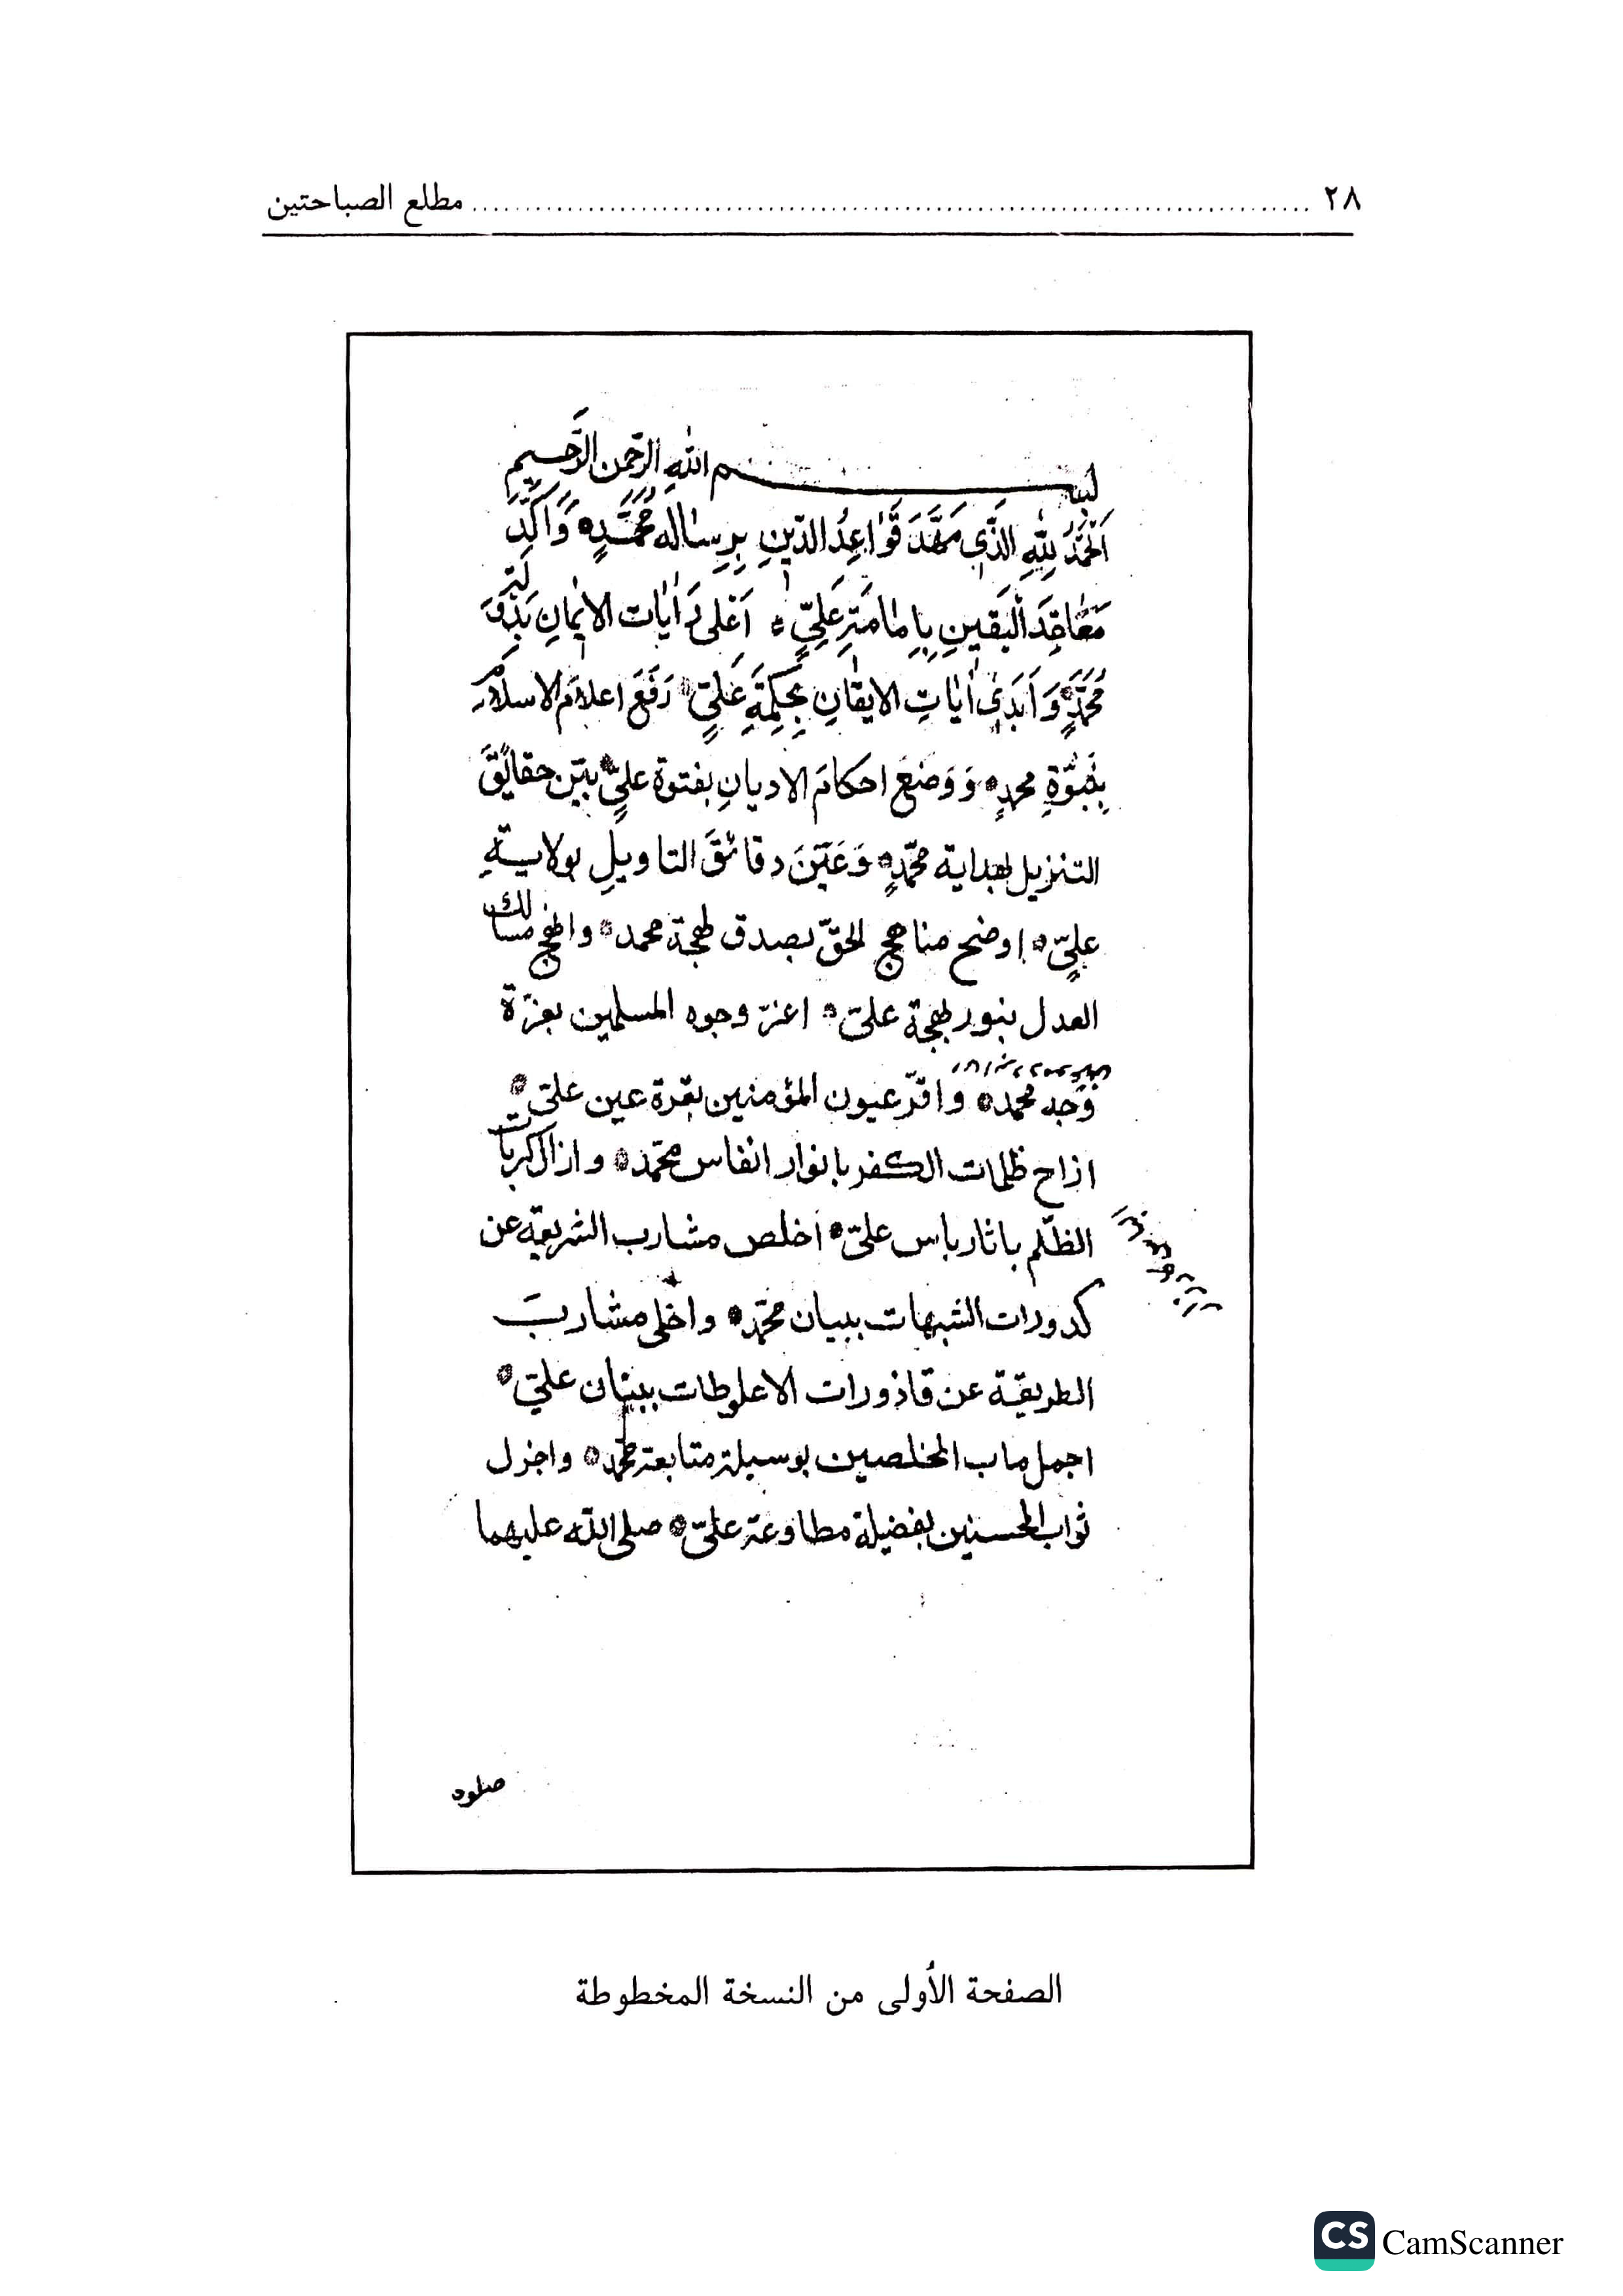 ٢٨ ........ مطلع الصباحتين
بسم الله الرحمن الرحيم
اَلحَمْدُ لِلّٰهِ الَّذِي مَهَّدَ قَوٰاعِدُ الدّينِ بِرِسٰاله مُحَمَّدٍ وَاَكَّدَ
مَعٰاقِدَ اليَقينِ بِاِمٰامَتِرِ عَلِيٍّ اَعْلى رٰايٰات الايمانِ بَذِلَّةِ
مُحَمَّدٍ وَاَبَدىٰ اٰيٰاتِ الايقٰانِ بِحِكمَةِ عَليٍّ رَفَعَ اعلامَ الاسلام
بِنُبُوَّةِ محمدٍ وَوَضَعَ احكامَ الاديانِ بفتوة عليٍّ بيّن حقايقَ
التنزيل بهداية محمّدٍ وَعَيَّنَ دقائقَ التاويلِ بولايةِ
عليٍّ اوضح مناهج الحقّ بصدق لهجة محمد وانهج مسالك
العدل بنور بهجة عليّ اعزّ وجوه المسلمين بعزّة
وَجه محمد واقرّ عيون المؤمنين بقرة عين عليّ
ازاح ظلمات الكفر بانوار انفاس محمّد وازال كربات
الظلم باثار باس عليّ اخلص مشارب الشريعة عن
كدورات الشبهات ببيان محمّد واخلى مشاربَ
الطريقة عن قاذورات الاغلوطات ببنان عليّ
اجمل ماب المخلصين بوسيلة متابعة محمد واجزل
ثواب المحسنين بفضيلة مطاوعة عليّ صلى الله عليهما
صلوة
الصفحة الأولى من النسخة المخطوطة
CS CamScanner